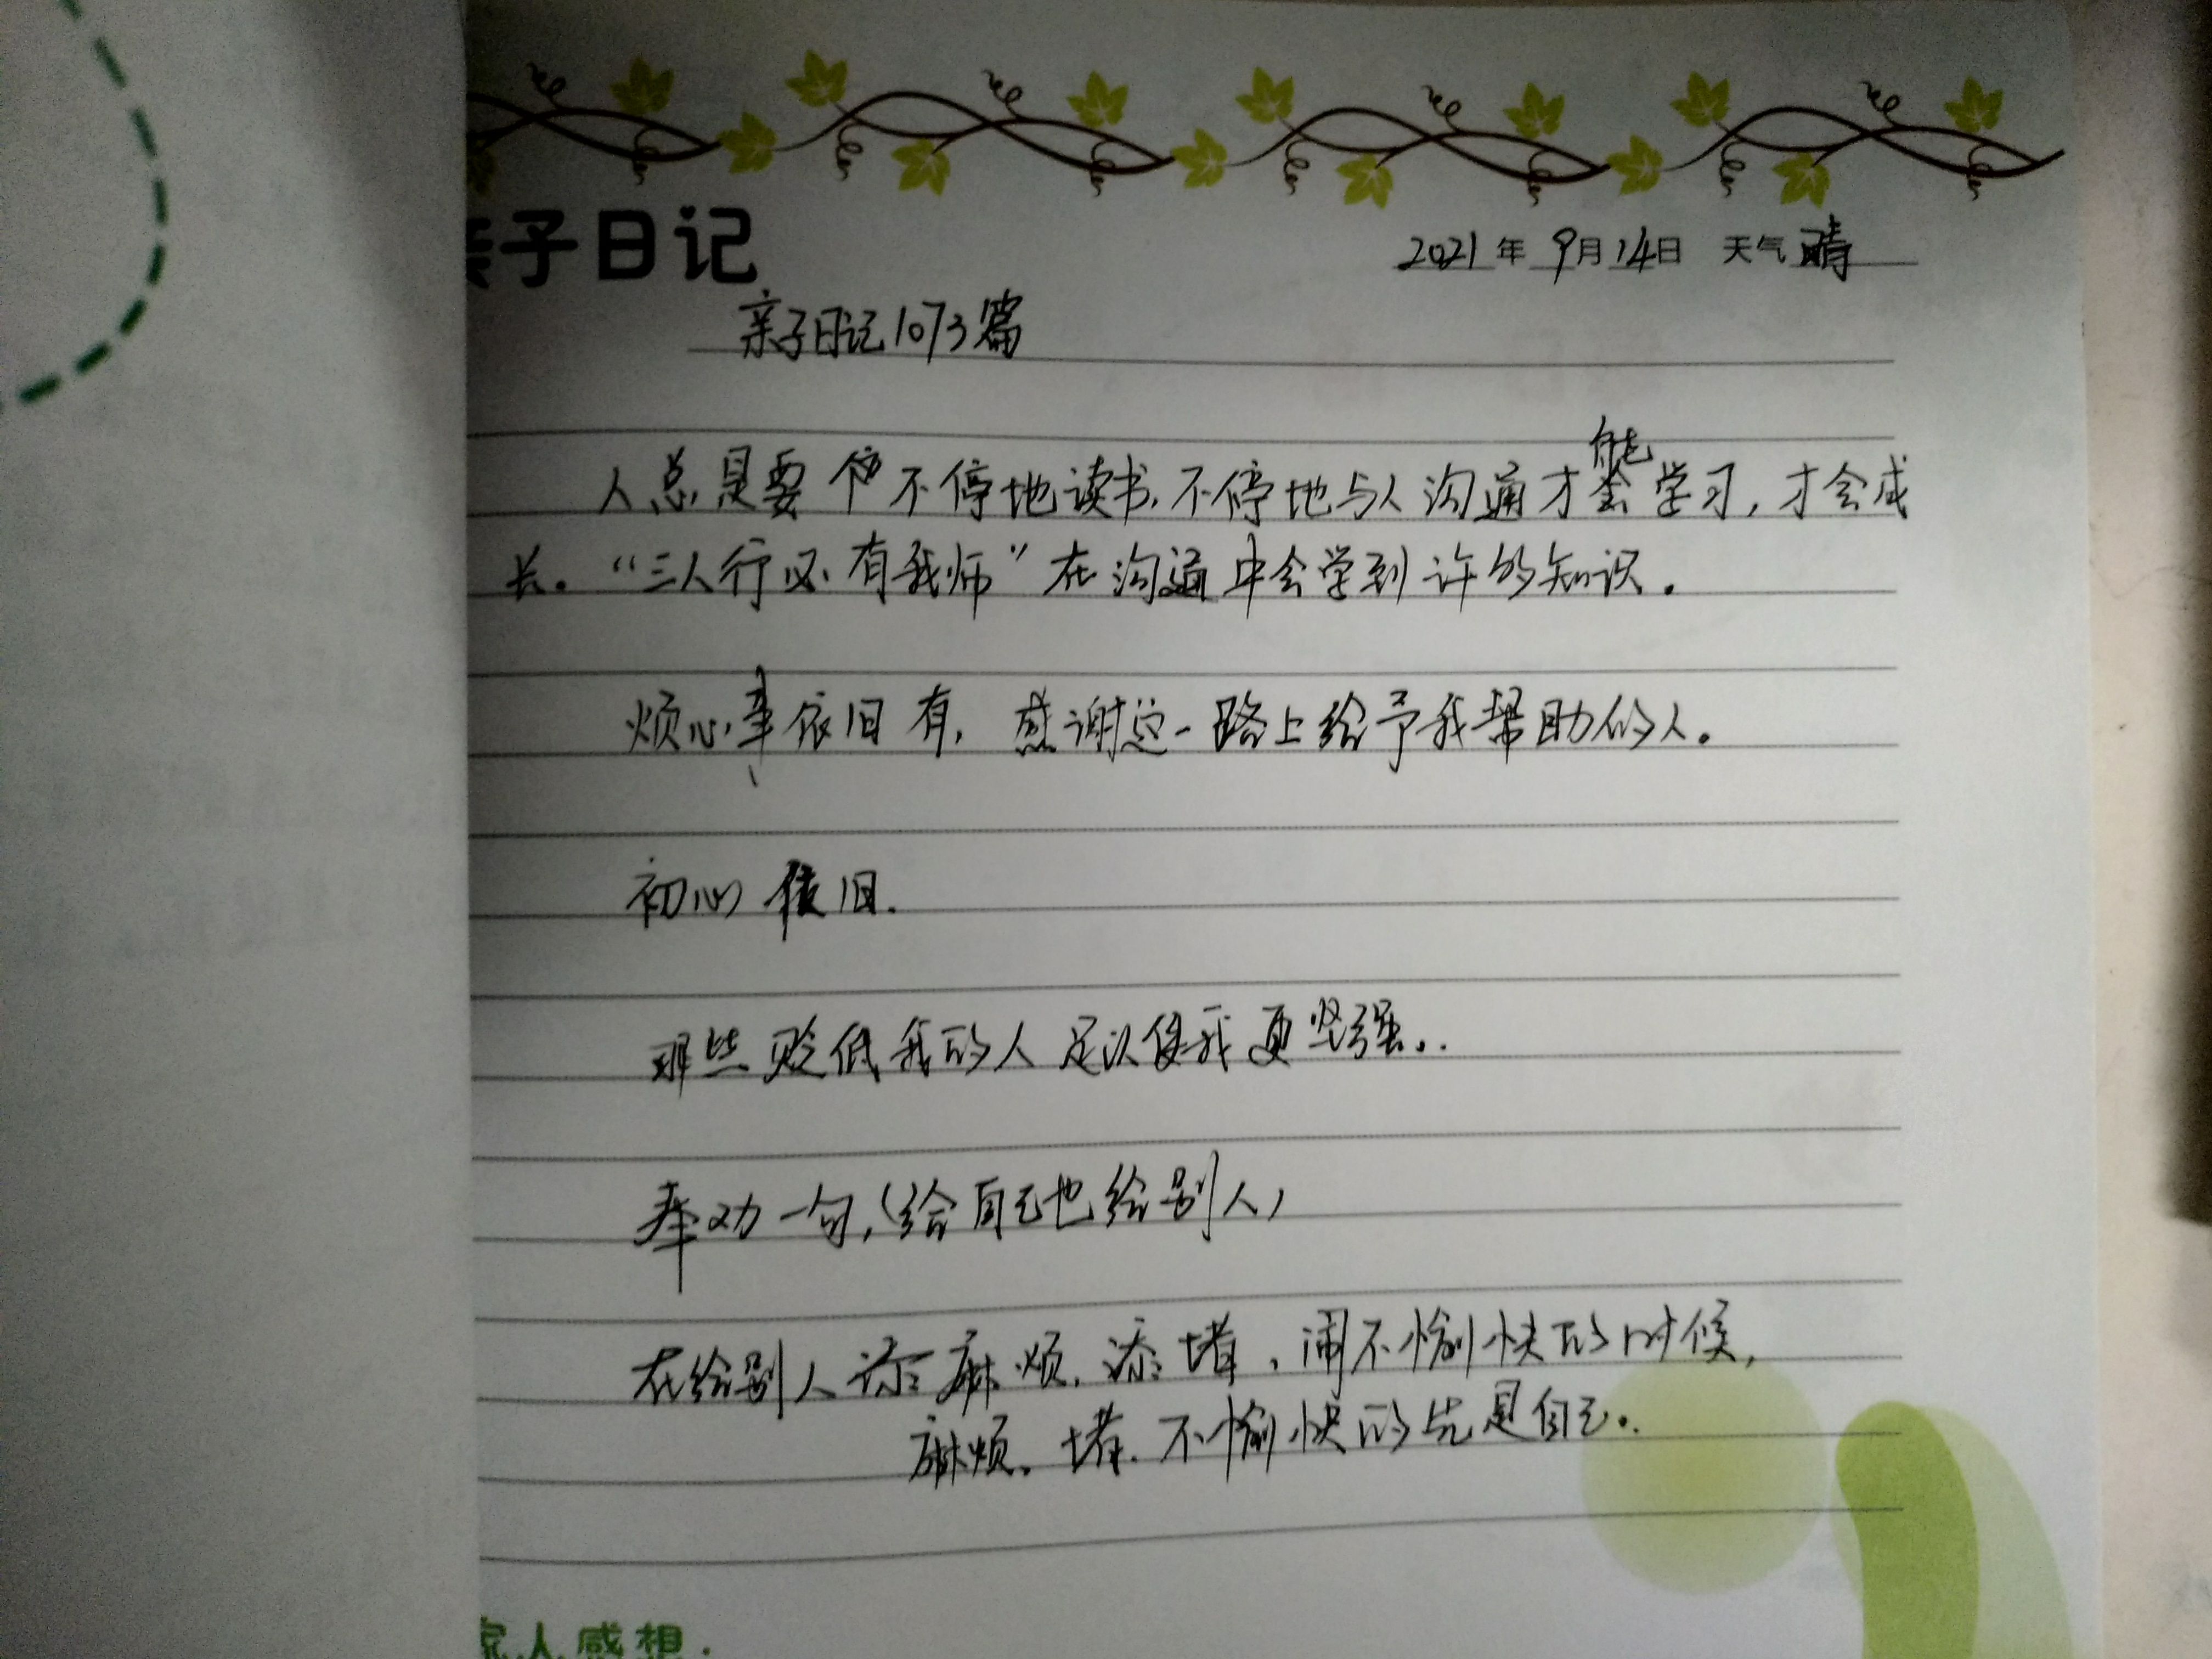 亲子日记
2021年9月14日 天气 晴
亲子日记1073篇
人总是要不停地读书,不停地与人沟通才能学习,才会成
长。“三人行必有我师”在沟通中会学到许的知识.
烦心事依旧有,感谢这一路上给予我帮助的人。
初心依旧.
那些贬低我的人足以使我更坚强..
奉劝一句,(给自己也给别人)
在给别人添麻烦,添堵,闹不愉快的时候,
麻烦、堵.不愉快的先是自己..
家人感想: